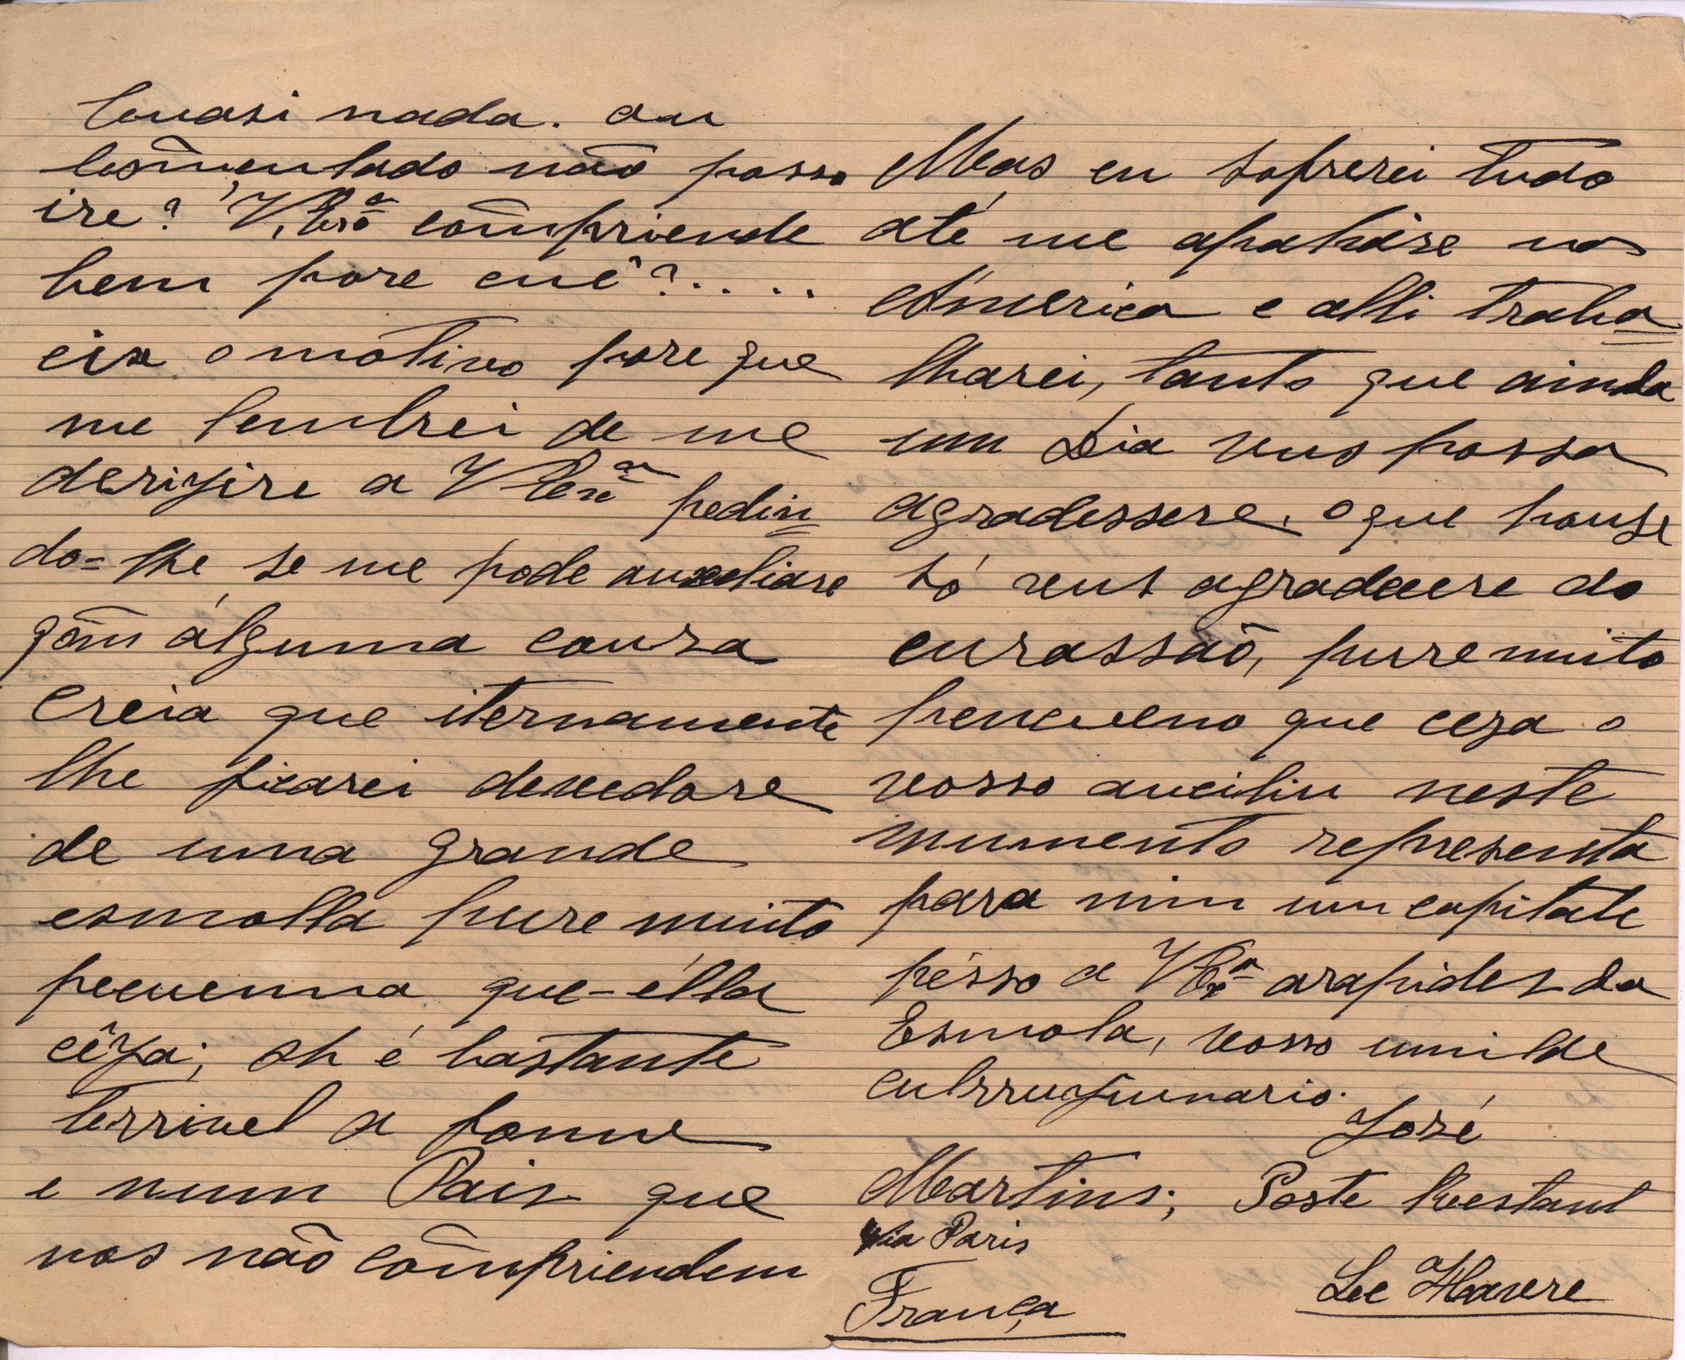 Cuasi nada. au
Comsulado não posso
ire? V. Exª compriende
bem pore cuê?.....
eis o motivo pore que
me lembrei de me
derigire a V Exª pedin
do=lhe se me pode auxeliare
qom álguma couza
Creia que iternamente
lhe ficarei devedore
de uma grande
esmolla pure muito
pecuenna que-élla
cêja; oh é bastante
terrivel a fome
e num Pais que
nos não compriendem
Mas eu sofrerei tudo
até me apaháre na
América e alli traba
lharei, tanto que ainda
um Dia vus possa
agradessere. o que houje
só vus agradecere do
curassão, pure muito
pencueno que ceza o
vosso auciliu neste
mumento representa
para mim um capitale
pésso a V Exª arapides da
Esmola, vosso umilde
culrrugiunario.
José
Martins; Poste Restant
via Paris
Le Havre
França